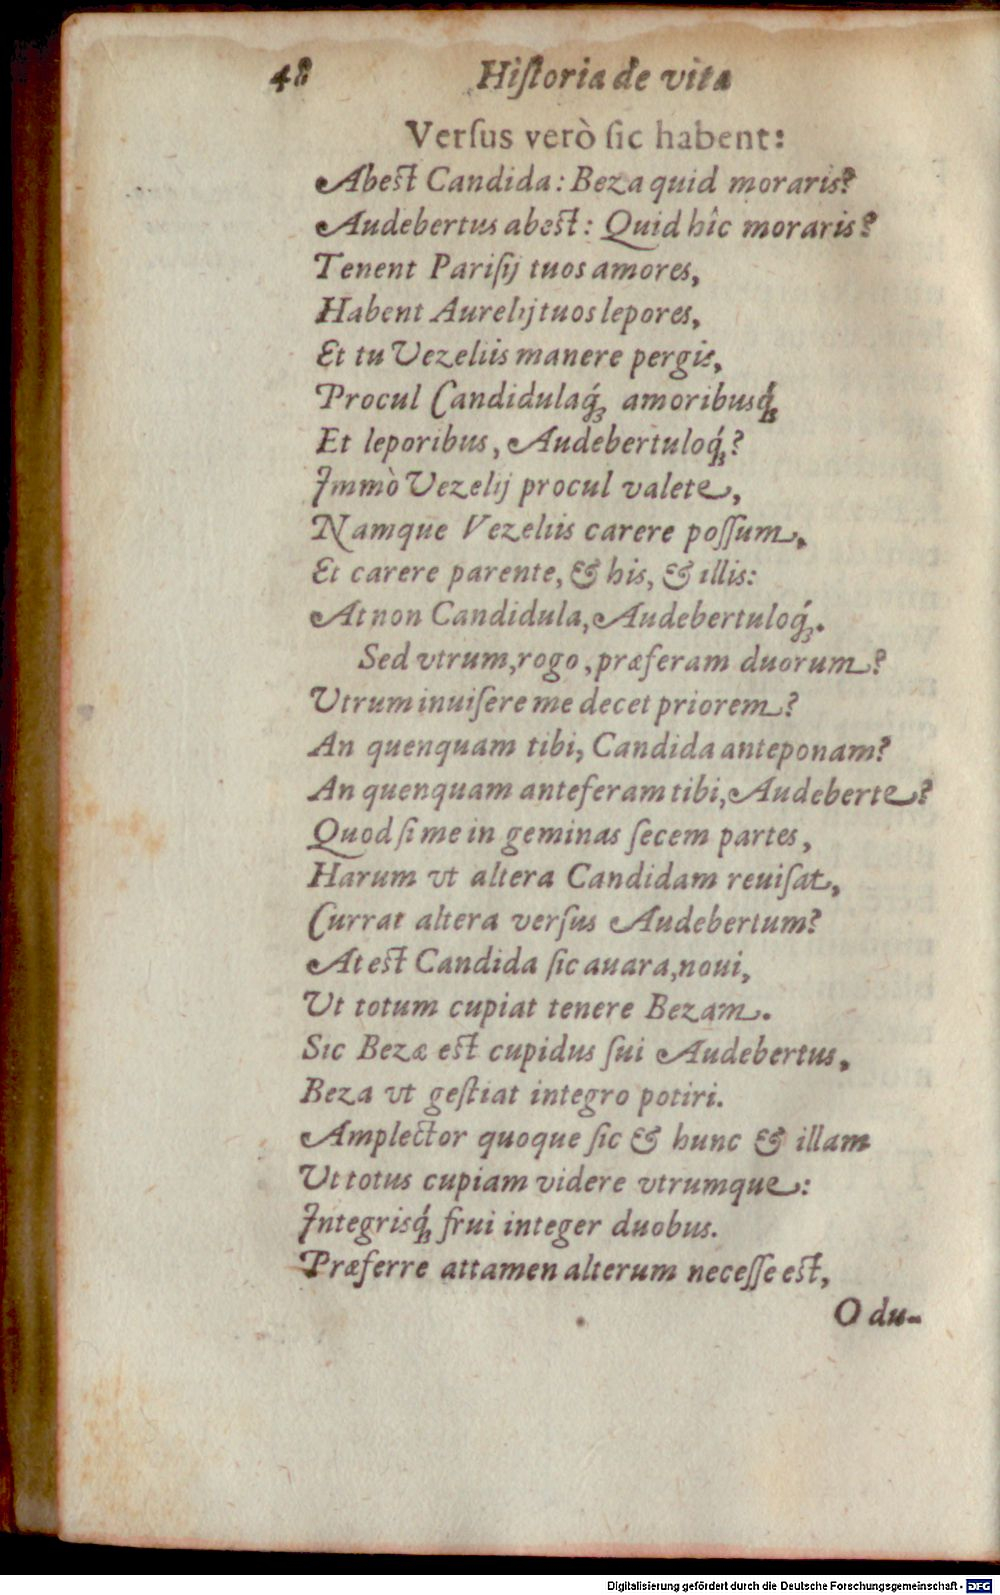 48 Hiſtoria de vita
Verſus verò ſic habent:
Abeſt Candida: Beza quid moraris?
Audebertus abeſt: Quid hîc moraris?
Tenent Pariſij tuos amores,
Habent Aurelij tuos lepores,
Et tu Vezeliis manere pergis,
Procul Candidulaq́ꝫ amoribusq́ꝫ
Et leporibus, Audebertuloq́ꝫ?
Immò Vezelij procul valete,
Namque Vezeliis carere poſſum,
Et carere parente, & his, & illis:
At non Candidula, Audebertuloq́ꝫ.
Sed vtrum, rogo, præferam duorum?
Utrum inuiſere me decet priorem?
An quenquam tibi, Candida anteponam?
An quenquam anteferam tibi, Audeberte?
Quod ſi me in geminas ſecem partes,
Harum vt altera Candidam reuiſat,
Currat altera verſus Audebertum?
At eſt Candida ſic auara, noui,
Ut totum cupiat tenere Bezam.
Sic Bezæ eſt cupidus ſui Audebertus,
Beza vt geſtiat integro potiri.
Amplector quoque ſic & hunc & illam
Ut totus cupiam videre vtrumque:
Integrisq́ꝫ frui integer duobus.
Præferre attamen alterum neceſſe eſt,
O du-
Digitalisierung gefördert durch die Deutsche Forschungsgemeinschaft - DFG